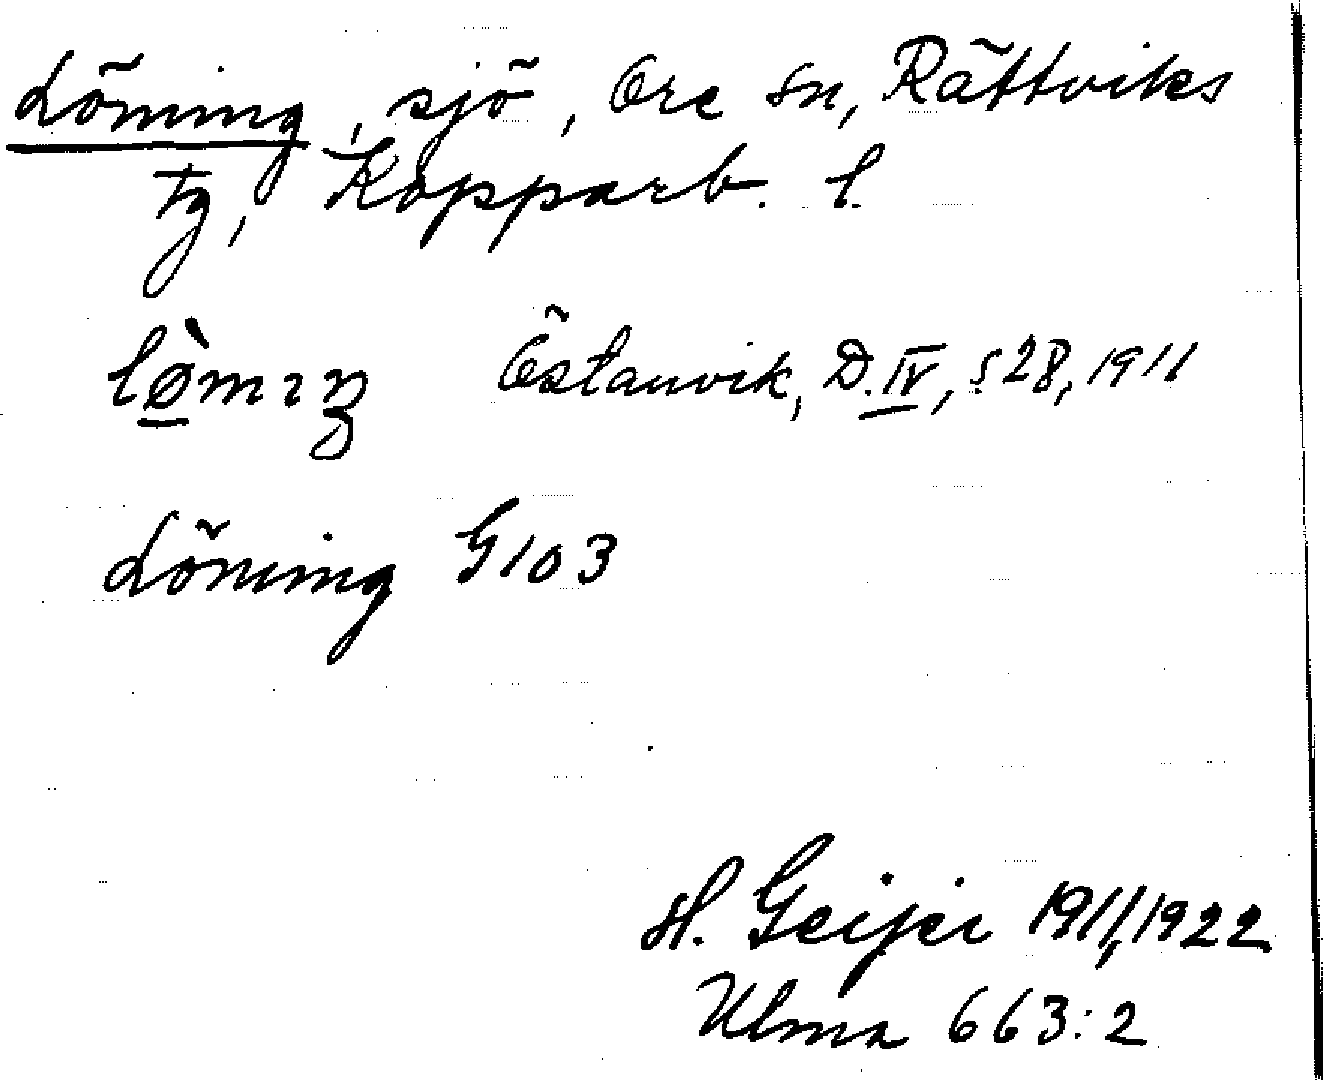 Löning, sjö, Ore sn, Rättviks
tg, Kopparb. l.
lø̠̀nıŋ Östanvik, D.IV, §28, 1911
Löning G103
H. Geijer 1911, 1922
Ulma 663:2